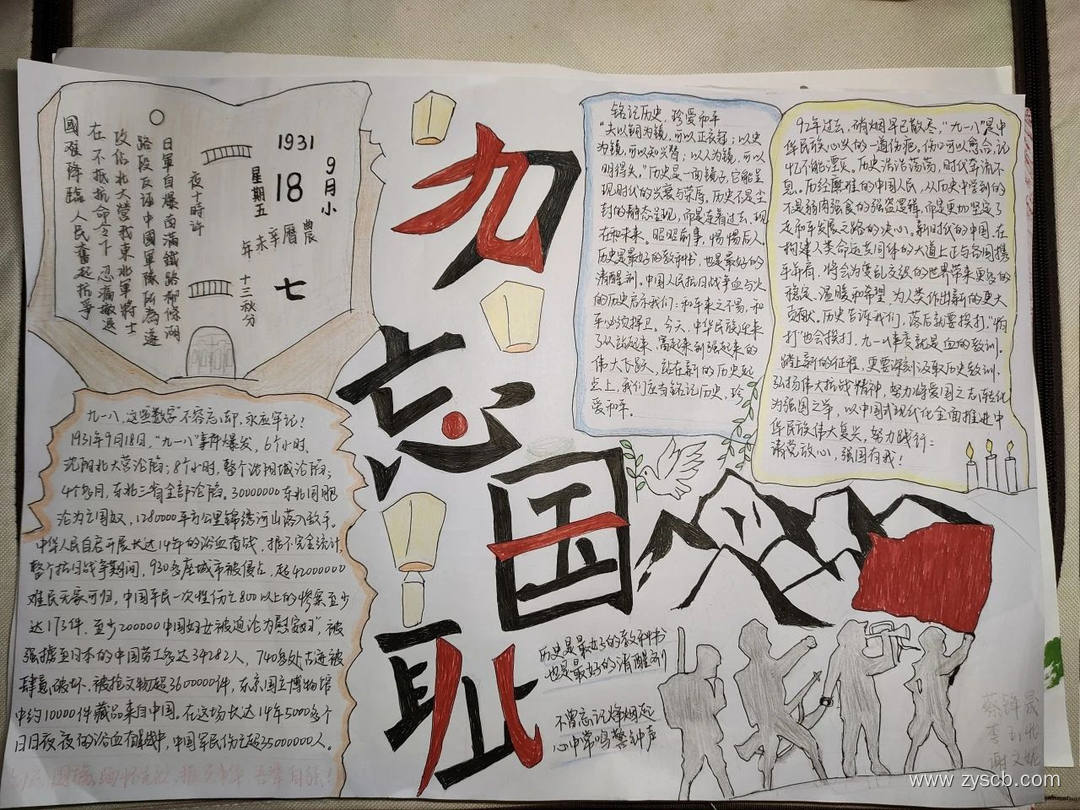 1931
9月小
18
星期五
農曆辛未年
七
十三秋分
夜十時許
日軍自爆南滿鐵路柳條湖
路段反诬中國軍隊所為遂
攻佔北大營我東北軍將士
在不抵抗命令下忍痛撤退
國難降臨人民奮起抗爭
九
忘
国
耻
铭记历史，珍爱和平
"夫以铜为镜，可以正衣冠；以史
为镜，可以知兴替；以人为镜，可以
明得失。"历史是一面镜子，它能呈
现时代的兴衰与荣辱，历史不是尘
封的静态呈现，而是连着过去、现
在和未来。昭昭前事，惕惕后人。
历史是最好的教科书，也是最好的
清醒剂。中国人民抗日战争血与火
的历史启示我们：和平来之不易，和
平必须捍卫。今天，中华民族迎来
了从站起来、富起来到强起来的
伟大飞跃，站在新的历史起
点上，我们应当铭记历史，珍
爱和平。
92年过去，硝烟早已散尽，"九一八"是中
华民族心头的一道伤疤，伤口可以愈合，记
忆不能湮灭。历史浩浩荡荡，时代奔流不
息。历经磨难的中国人民，从历史中学到的
不是弱肉强食的强盗逻辑，而是更加坚定了
走和平发展之路的决心。新时代的中国，在
构建人类命运共同体的大道上正与各国携
手前行，将会为变乱交织的世界带来更多的
稳定、温暖和希望，为人类作出新的更大
贡献。历史告诉我们，落后就要挨打，"怕
打"也会挨打。九一八事变就是血的教训。
踏上新的征程，更要深刻汲取历史教训，
弘扬伟大抗战精神，努力将爱国之志转化
为强国之举，以中国式现代化全面推进中
华民族伟大复兴，努力践行：
请党放心，强国有我！
九一八，这些数字不容忘却，永应牢记！
1931年9月18日，"九一八"事件爆发，6个小时，
沈阳北大营沦陷；8个小时，整个沈阳城沦陷；
4个多月，东北三省全部沦陷，30000000东北同胞
沦为亡国奴，1280000平方公里锦绣河山落入敌手。
中华人民自君开展长达14年的浴血奋战，据不完全统计，
整个抗日战争期间，930多座城市被侵占，超42000000
难民无家可归，中国平民一次性伤亡800以上的惨案至少
达173件，至少200000中国妇女被迫沦为"慰安妇"，被
强掳至日本的中国劳工多达34282人，740多处古迹被
肆意破坏、被抢文物超3600000件，东京国立博物馆
中约10000件藏品来自中国。在这场长达14年5000多个
日日夜夜的浴血奋战中，中国军民伤亡超35000000人。
历史是最好的教科书
也是最好的清醒剂
不曾忘记烽烟起
心中常鸣警钟声
www.zyscb.com